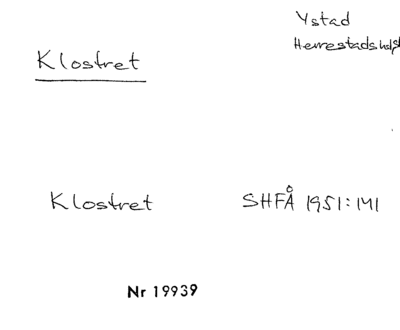 Ystad
Herrestads hd
Klostret
Klostret SHFÅ 1951:141
Nr 19939